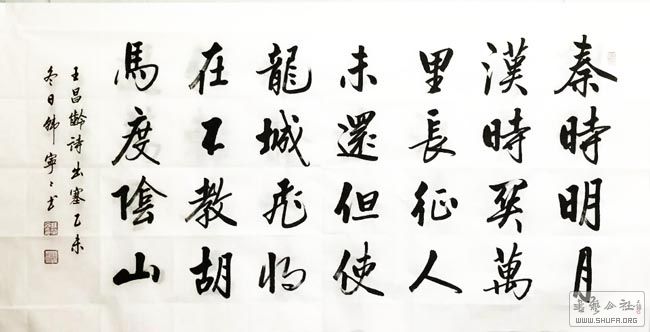 秦時明月
漢時關萬
里長征人
未還但使
龍城飛將
在不教胡
馬度陰山
王昌齡詩出塞乙未
冬日韓寧寧書
書藝公社
WWW.SHUFA.ORG